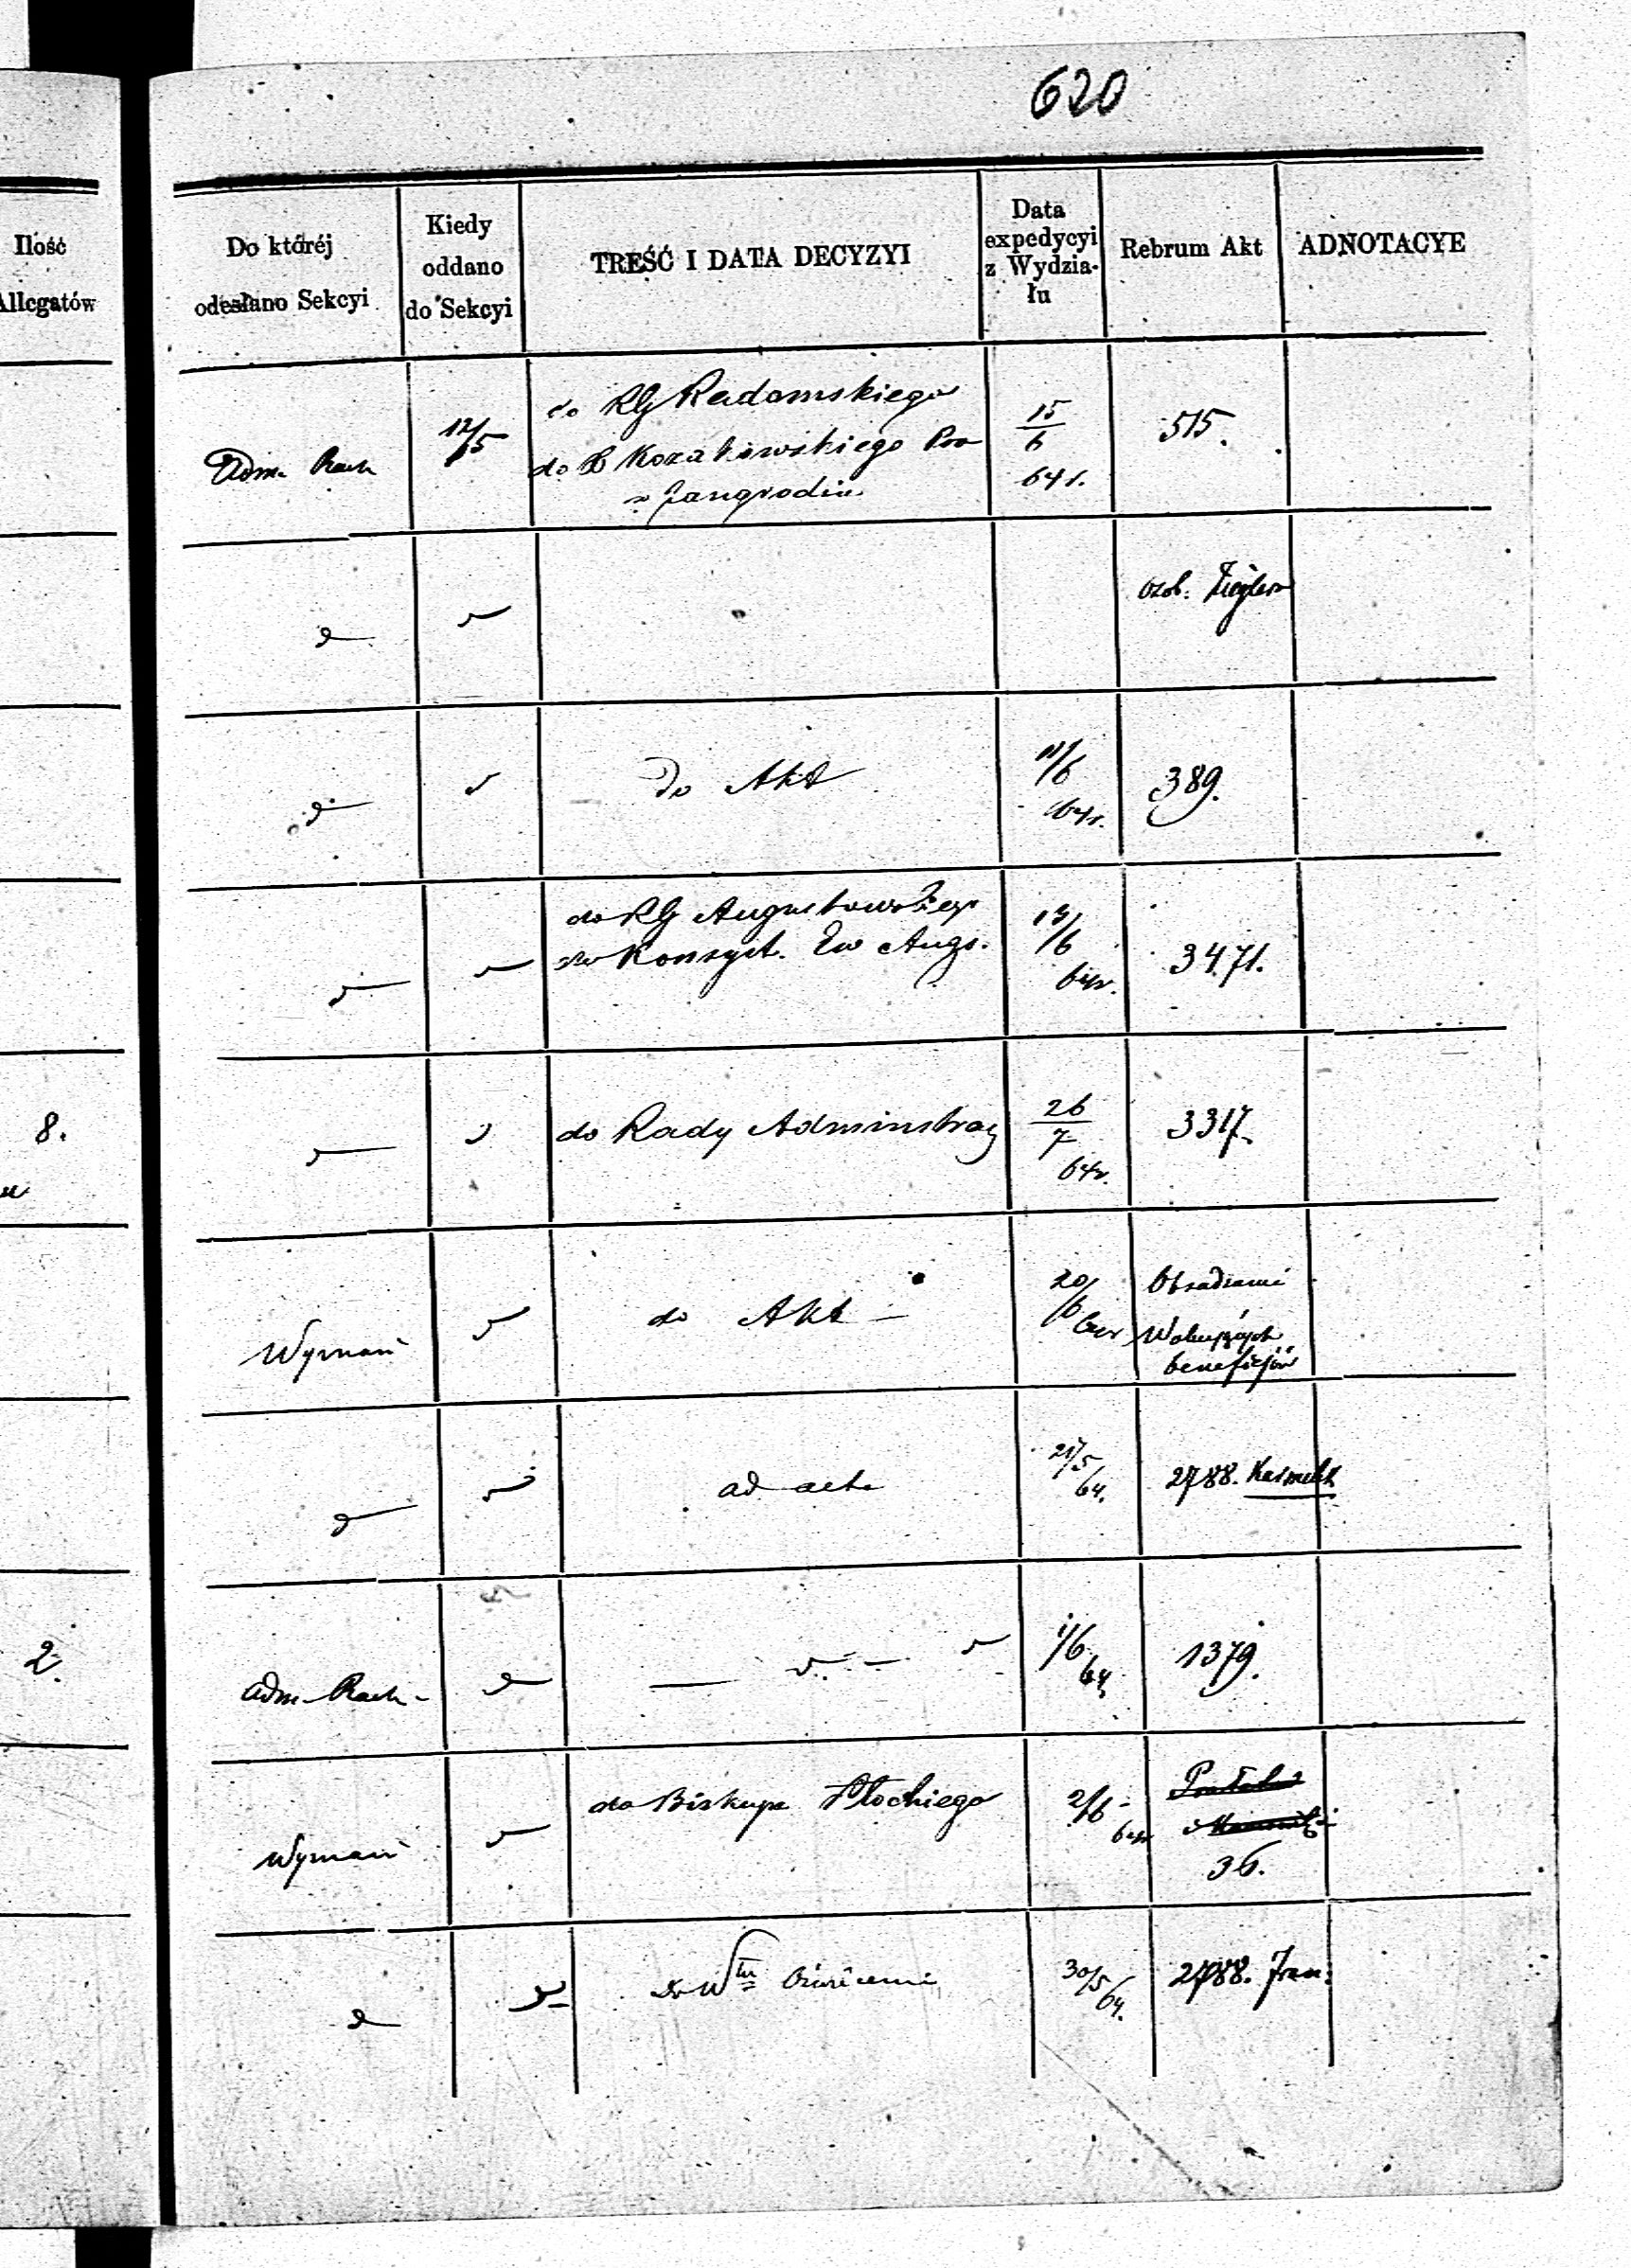 620
Ilość
Allegatów
Do któréj
odesłano Sekcyi
Kiedy
oddano
do Sekcyi
TREŚĆ I DATA DECYZYI
Data
expedycyi
z Wydzia-
łu
Rebrum Akt
ADNOTACYE
Adm. Rach
12/5
do RG Radomskiego
do X Kozakowskiego Pro
w
15/6
64 r.
515.
ozob. Zieglera
Do Akt
11/6
64 r.
389.
do RG Augustowskiego
do Konsyst. Ew Augs.
13/6
64r.
3471.
8.
do Rady Adminstracy
26/7
64r.
3317.
Wyznań
do Akt
20/6
64r
Obsadzanie
Wakujących
beneficjów
ad acta
21/5
64.
2788. Karmelit
2.
Adm-Rach-
1/6
64
1379.
Wyznań
do Biskupa Płockiego
2/6
64r
36.
Do W
30/5
64.
2788. Fran.